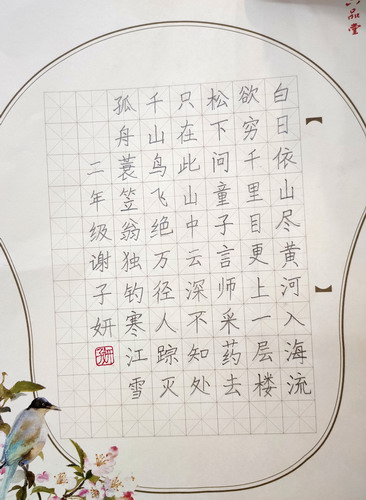 品堂
白日依山尽黄河入海流
欲穷千里目更上一层楼
松下问童子言师采药去
只在此山中云深不知处
千山鸟飞绝万径人踪灭
孤舟蓑笠翁独钓寒江雪
二年级谢子妍